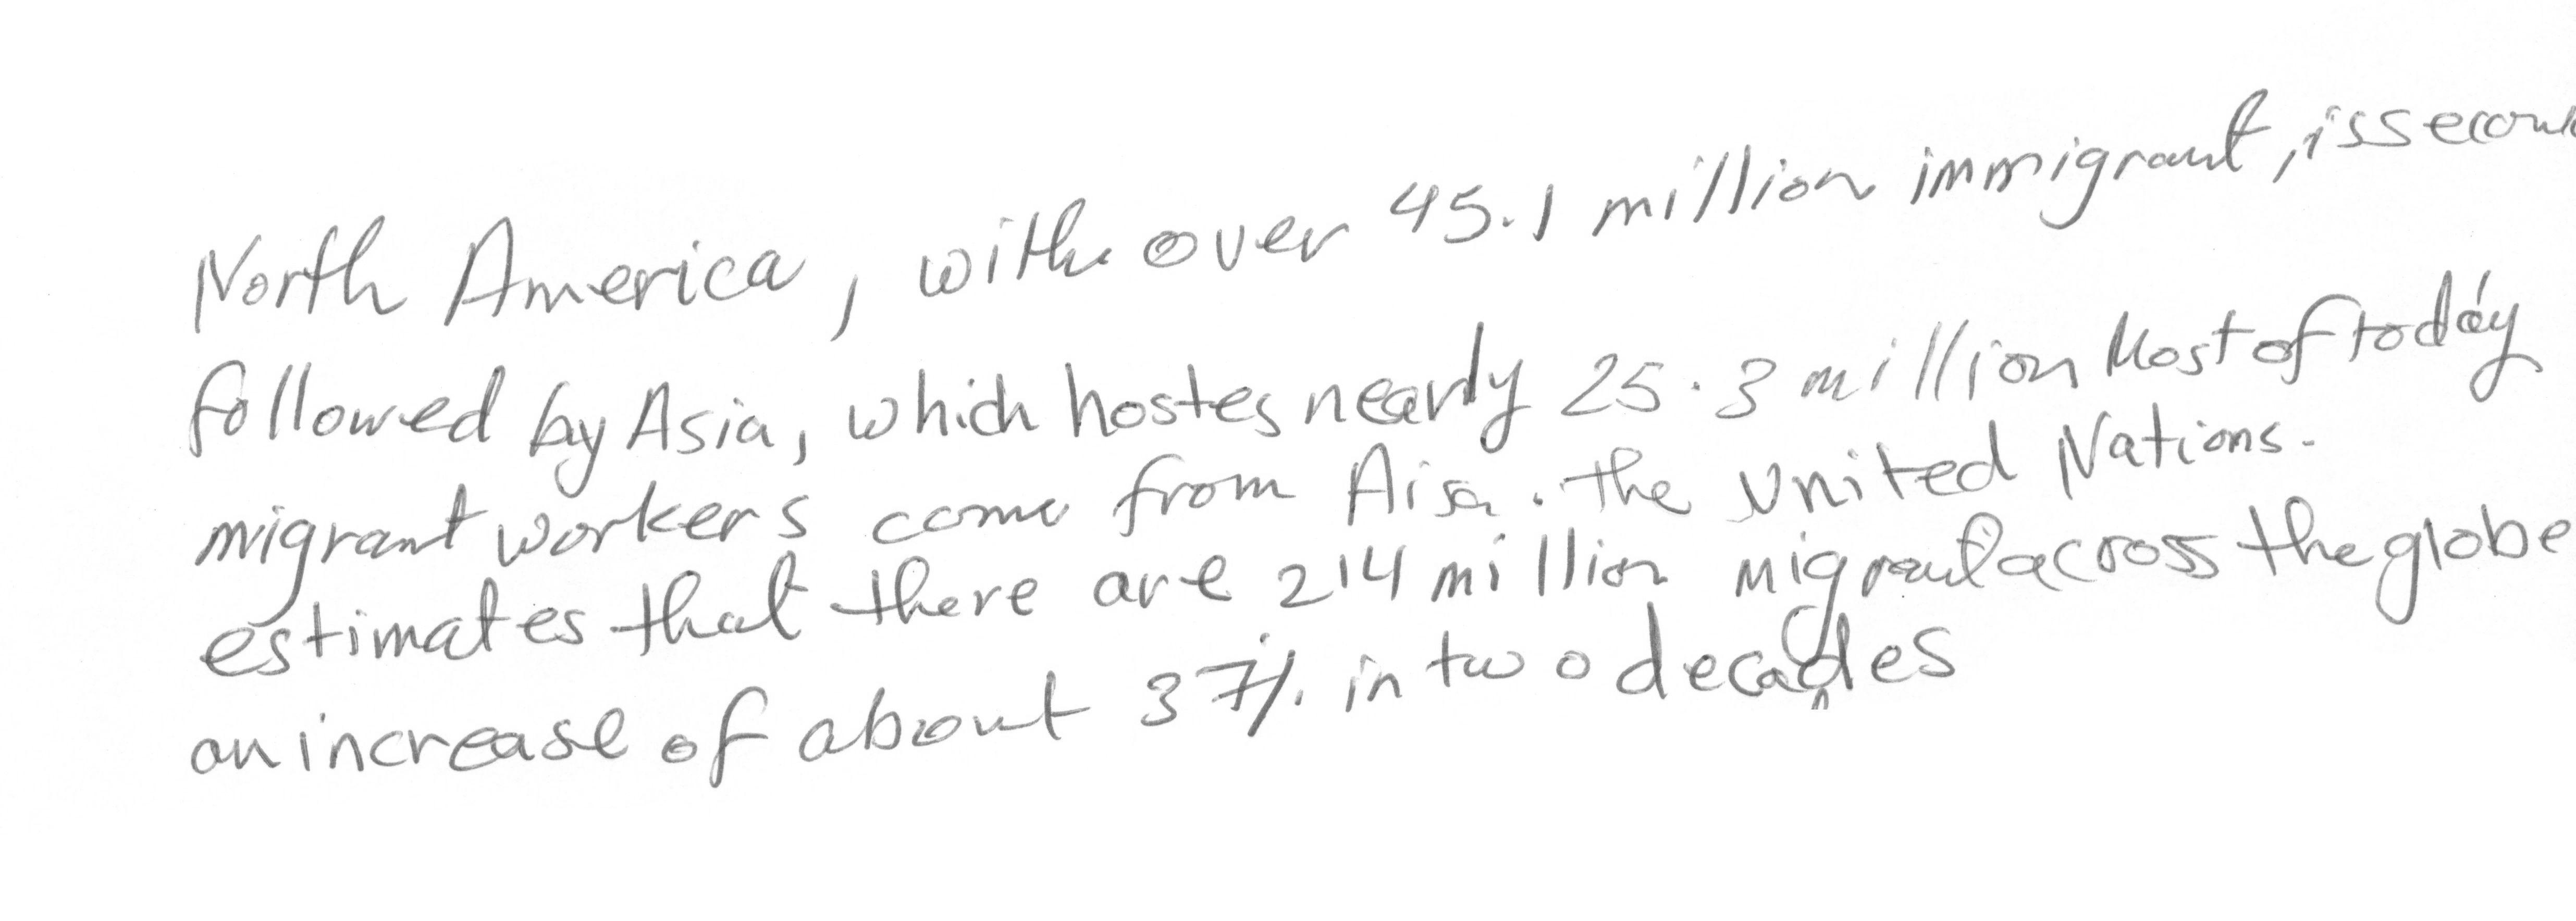 North America, with over 45.1 million immigrant, is second
followed by Asia, which hostes nearly 25.3 million Most of today
migrant workers come from Aisa. the United Nations.
estimates that there are 214 million migrant across the globe
an increase of about 37% in two decades